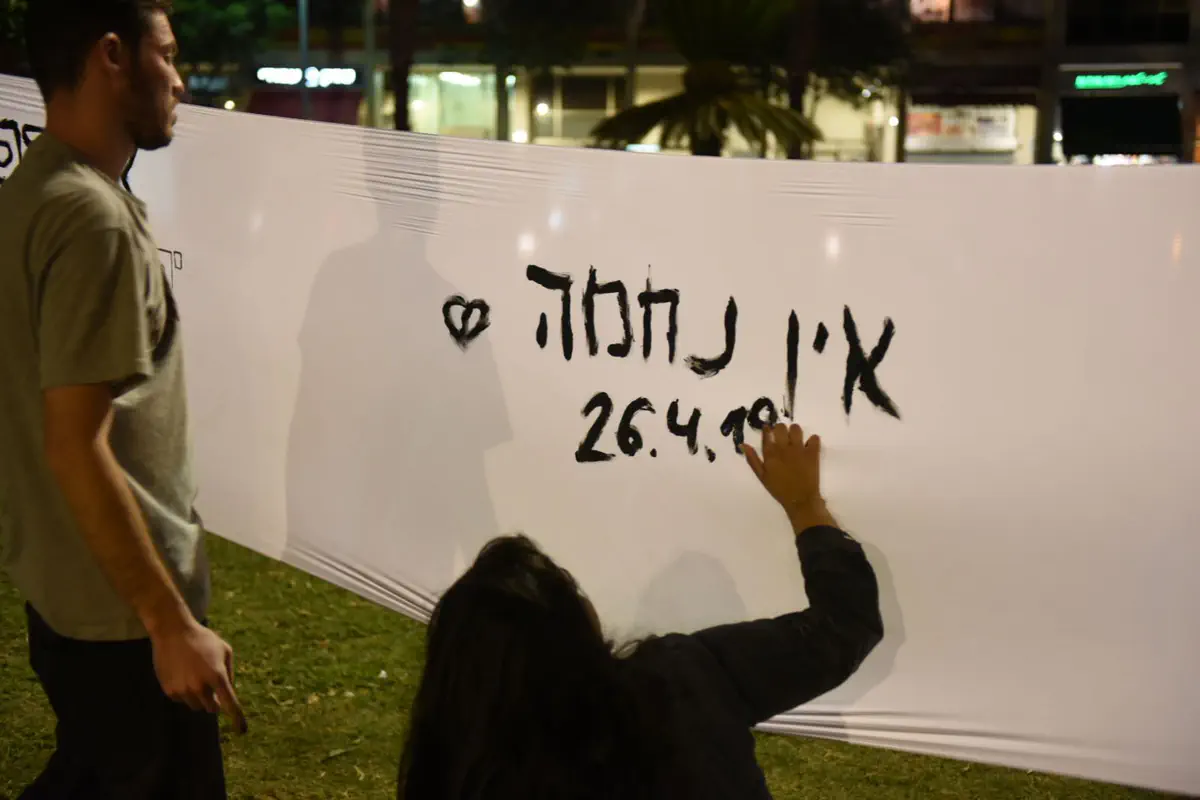 אין נחמה
26.4.19